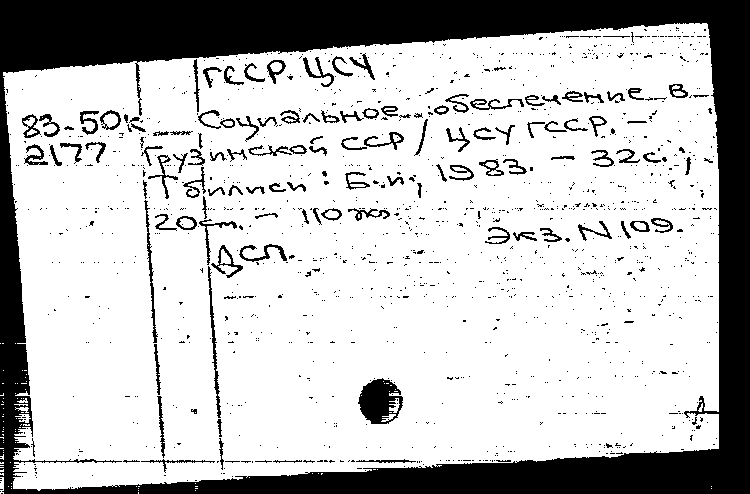 ГССР. ЦСУ.
83-50к Социальное обеспечение в
2177 Грузинской ССР / ЦСУ ГССР. –
Тбилиси: Б.и., 1983. – 32с.;
20см. – 110 экз.
ДСП. Экз. N 109.